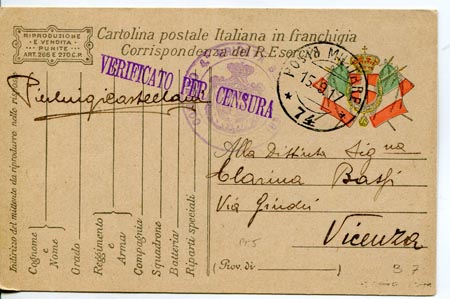 RIPRODUZIONE
E VENDITA
PUNITE
ART. 266 E 270 C.P.
Cartolina postale Italiana in franchigia
Corrispondenza del R. Esercito
VERIFICATO PER CENSURA
POSTA MILITARE
15.9.17
* 74 *
Pierluigi Castellani
Alla Distinta Sig.na
Clarina
Via
Vicenza
(Prov. di )
Indirizzo del mittente da riprodurre nelle risposte
Cognome e Nome
Grado
Reggimento e Arma
Compagnia
Squadrone
Batteria
Riparti speciali
B 7